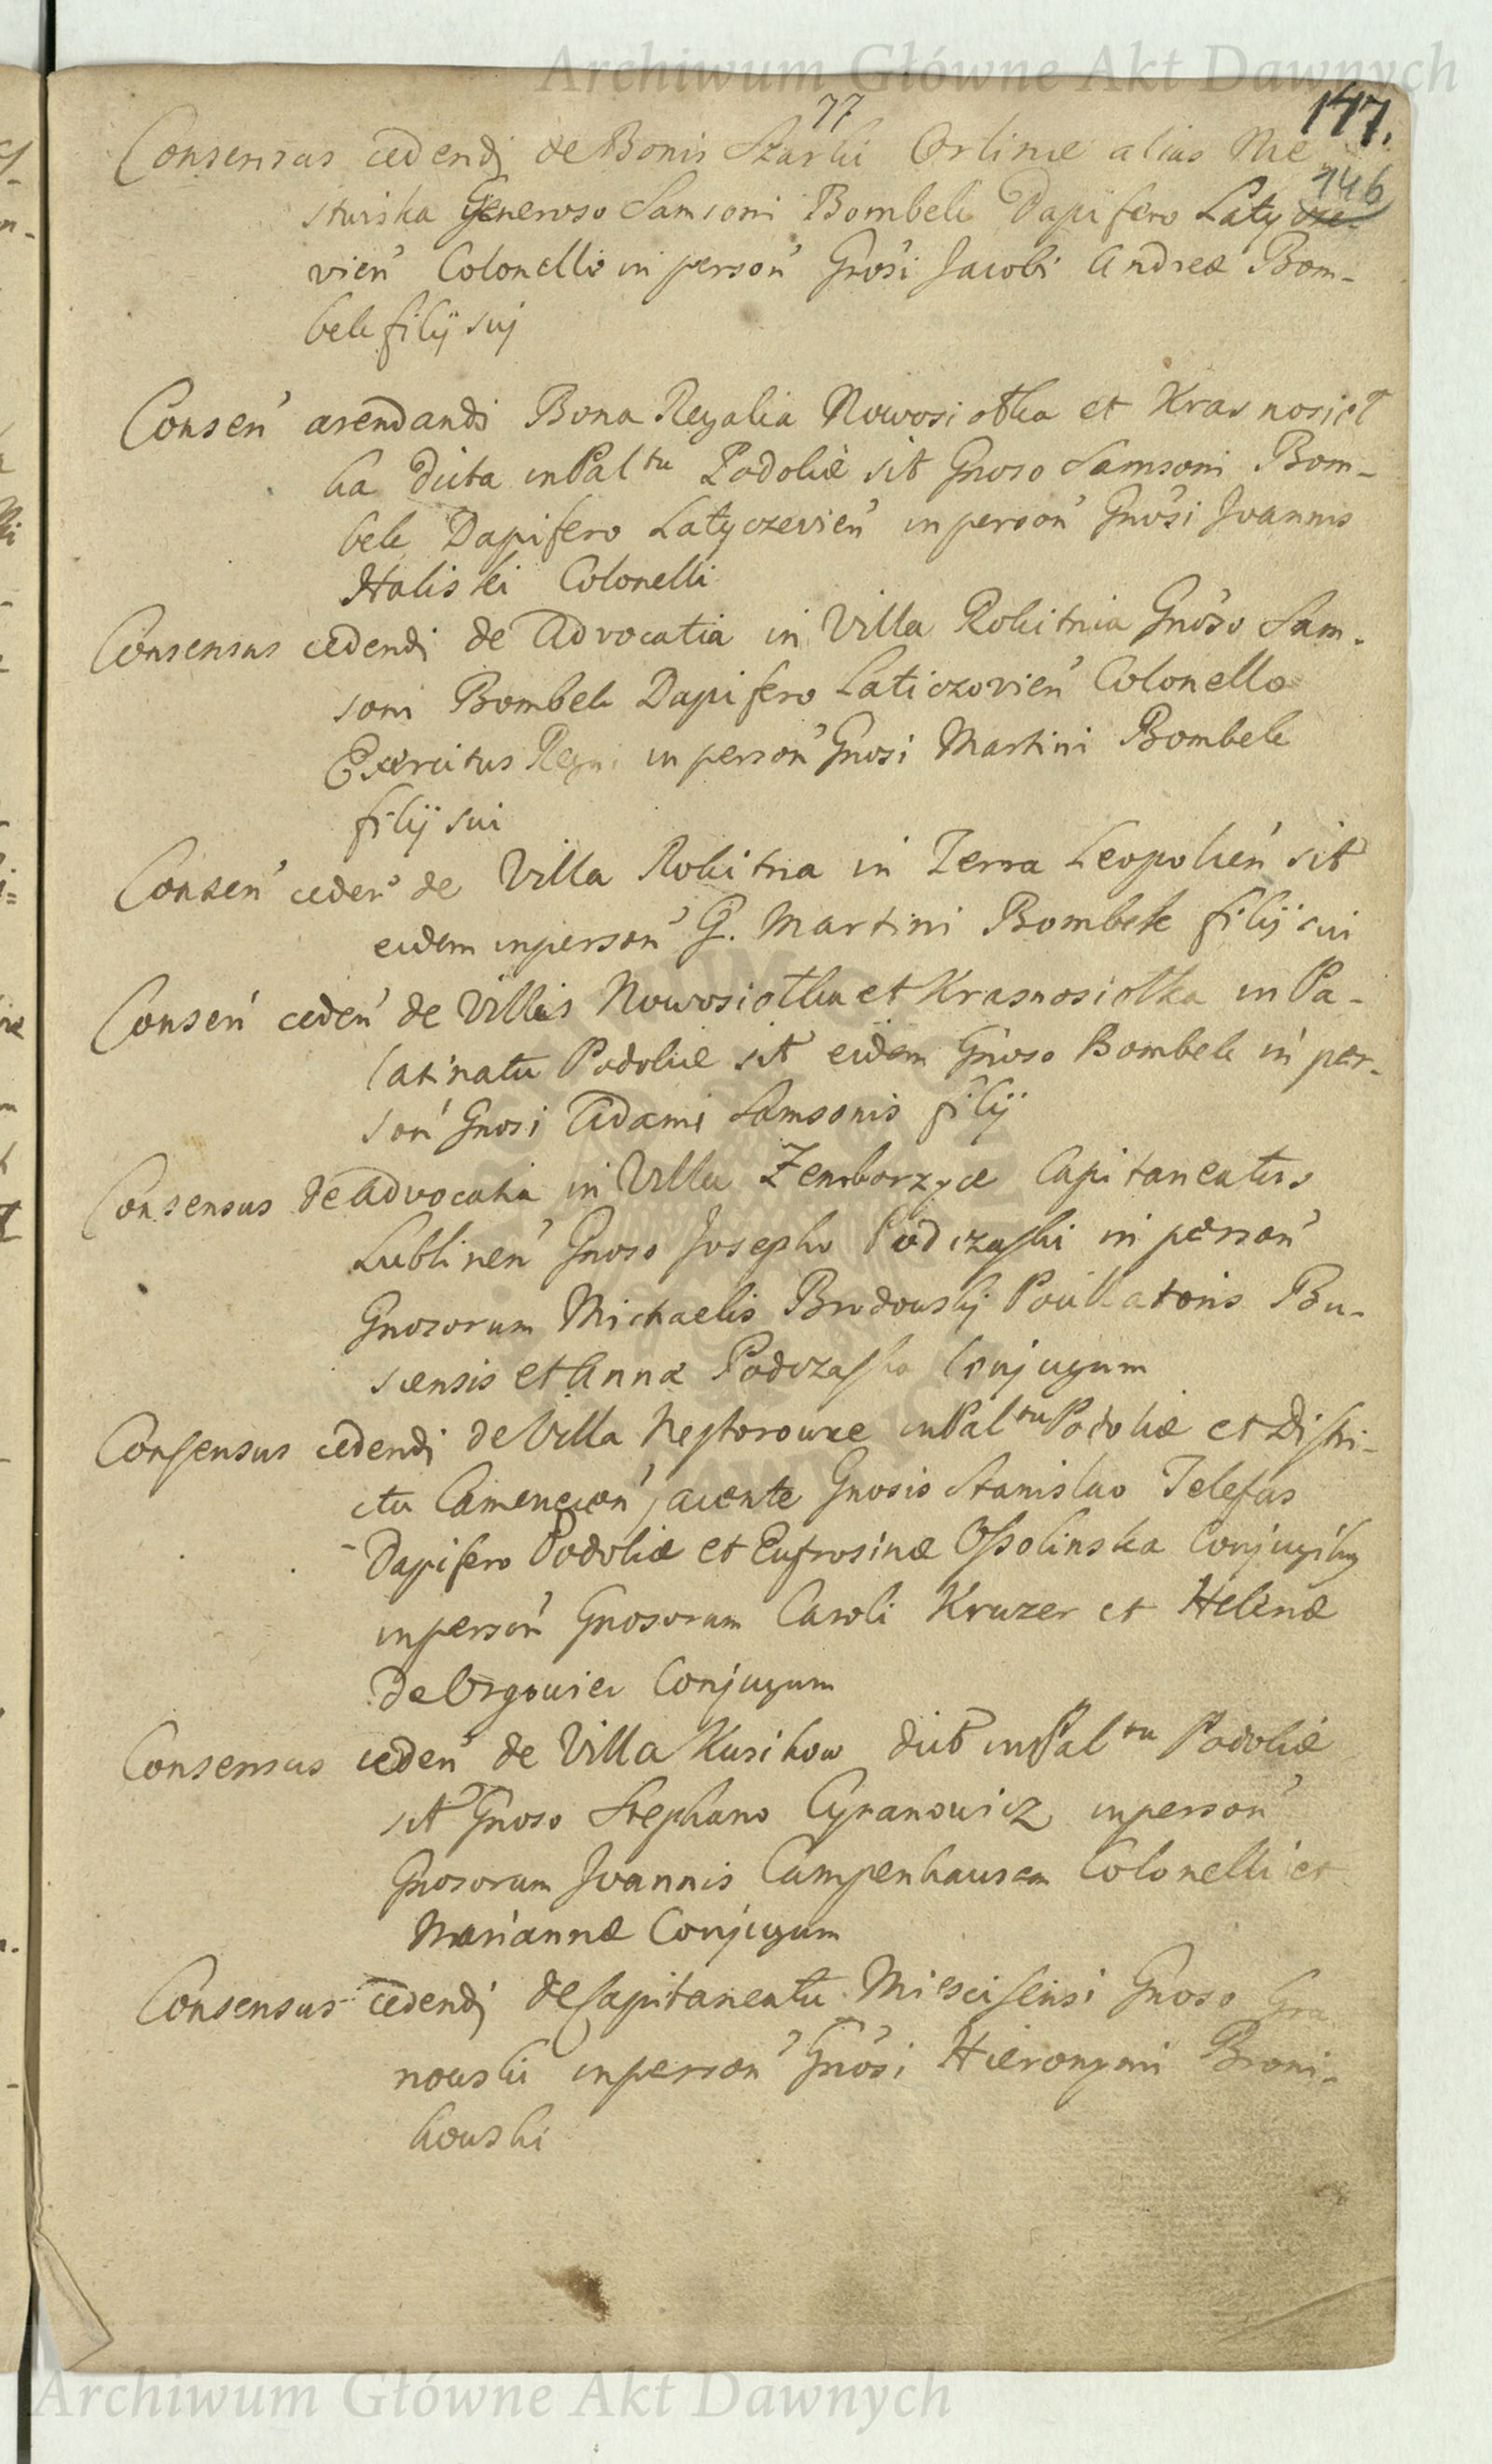 Archiwum Główne Akt Dawnych
77
147.
146
Consensus cedendi de Bonis Starki Orlinie alias Nie
stwiska Generoso Samsoni Bombek Dapifero Latycze-
vien̄ Colonello in person̄ Gn̄osi Jacobi Andreæ Bom-
bek filij sui
Consen̄ arendandi Bona Regalia Nowosiołka et Krasnosioł
ka dicta in Pal^tu Podoliæ sit Gnoso Samsoni Bom-
bek Dapifero Latyczevien̄ in person̄ Gn̄osi Joannis
Haliski Colonelli
Consensus cedendi de Advocatia in Villa Rokitnia Gnoso Sam-
soni Bombek Dapifero Laticzovien̄ Colonello
Exercitus Regni in person̄ Gnosi Martini Bombek
filij sui
Consen̄ ceden̄ de Villa Rokitna in Terra Leopolien̄ sit
eidem in person̄ G. Martini Bombek filij sui
Consen̄ ceden̄ de Villis Nowosiołka et Krasnosiołka in Pa-
latinatu Podoliæ sit eidem Gnoso Bombek in per-
son̄ Gnosi Adami Samsonis filij
Consensus de Advocatia in Villa Zemborzyce Capitaneatus
Lublinen̄ Gnoso Josepho Podczaski in person̄
Gnosorum Michaelis Brodowskij Pocillatoris Bu-
scensis et Annæ Podczaska Conjugum
Consensus cedendi de Villa Nestorowce in Pal^tu Podoliæ et Distri-
ctu Camenecen̄ jacente Gnosis Stanislao Telefus
Dapifero Podoliæ et Eufrosinæ Ossolinska Conjugibus
in person̄ Gnosorum Caroli Kruzer et Helenæ
Conjugum
Consensus ceden̄ de Villa Kusikow dict in Pal^tu Podoliæ
sit Gnoso Stephano Cyranowicz in person̄
Gnosorum Joannis Campenhausen Colonelli et
Mariannæ Conjugum
Consensus cedendi de Capitaneatu Miescisensi Gnoso Gra
nowski in person̄ Gn̄osi Hieronymi Broni-
kowski
Archiwum Główne Akt Dawnych